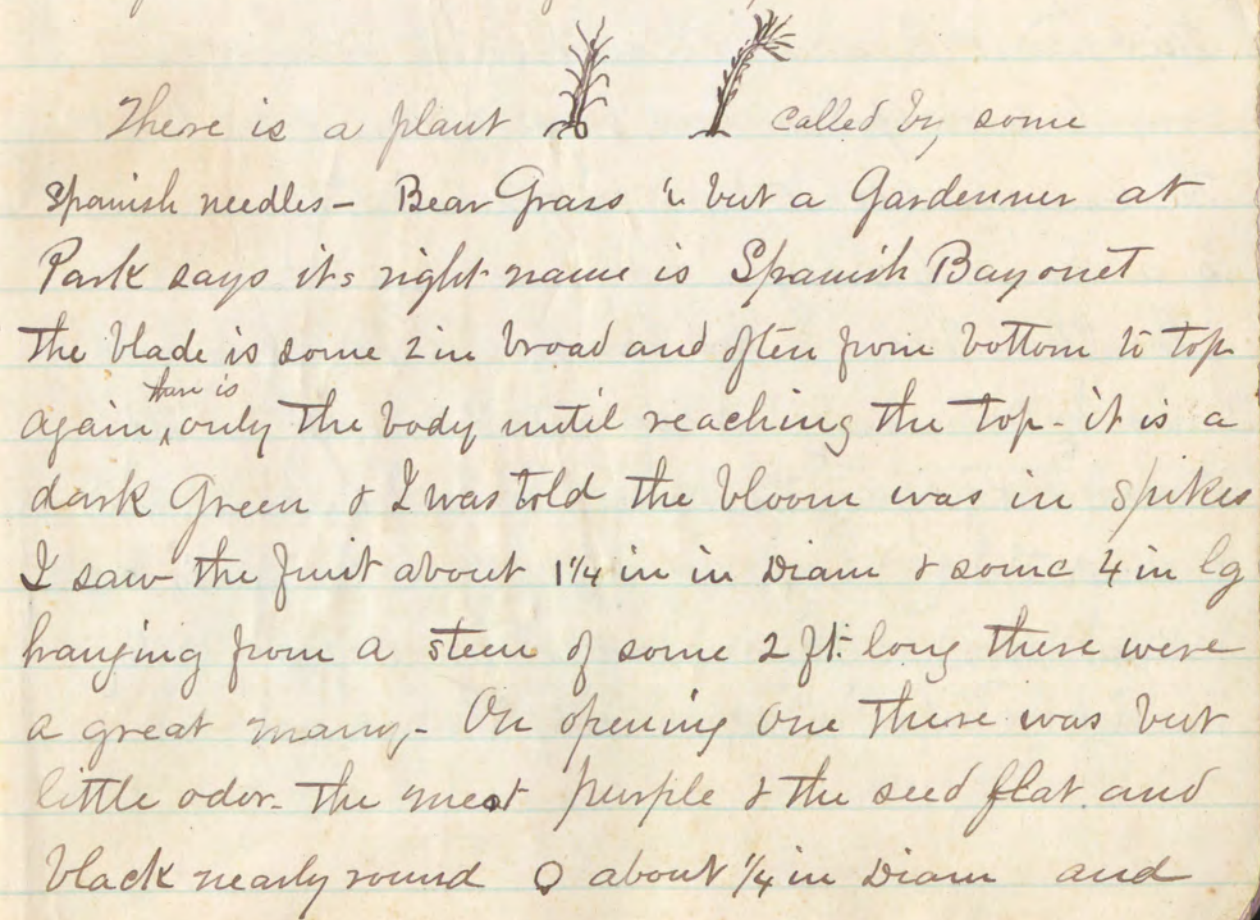 There is a plant called by some
Spanish needles - Bear Grass &c but a Gardenner at
Park says its right name is Spanish Bayonet
the blade is some 2 in broad and often from bottom to top
there is
again, only the body until reaching the top - it is a
dark Green & I was told the bloom was in spikes
I saw the fruit about 1 1/4 in in Diam & some 4 in lg
hanging from a stem of some 2 ft. long there were
a great many - On opening one there was but
little odor - the meat purple & the seed flat and
black nearly round about 1/4 in Diam and